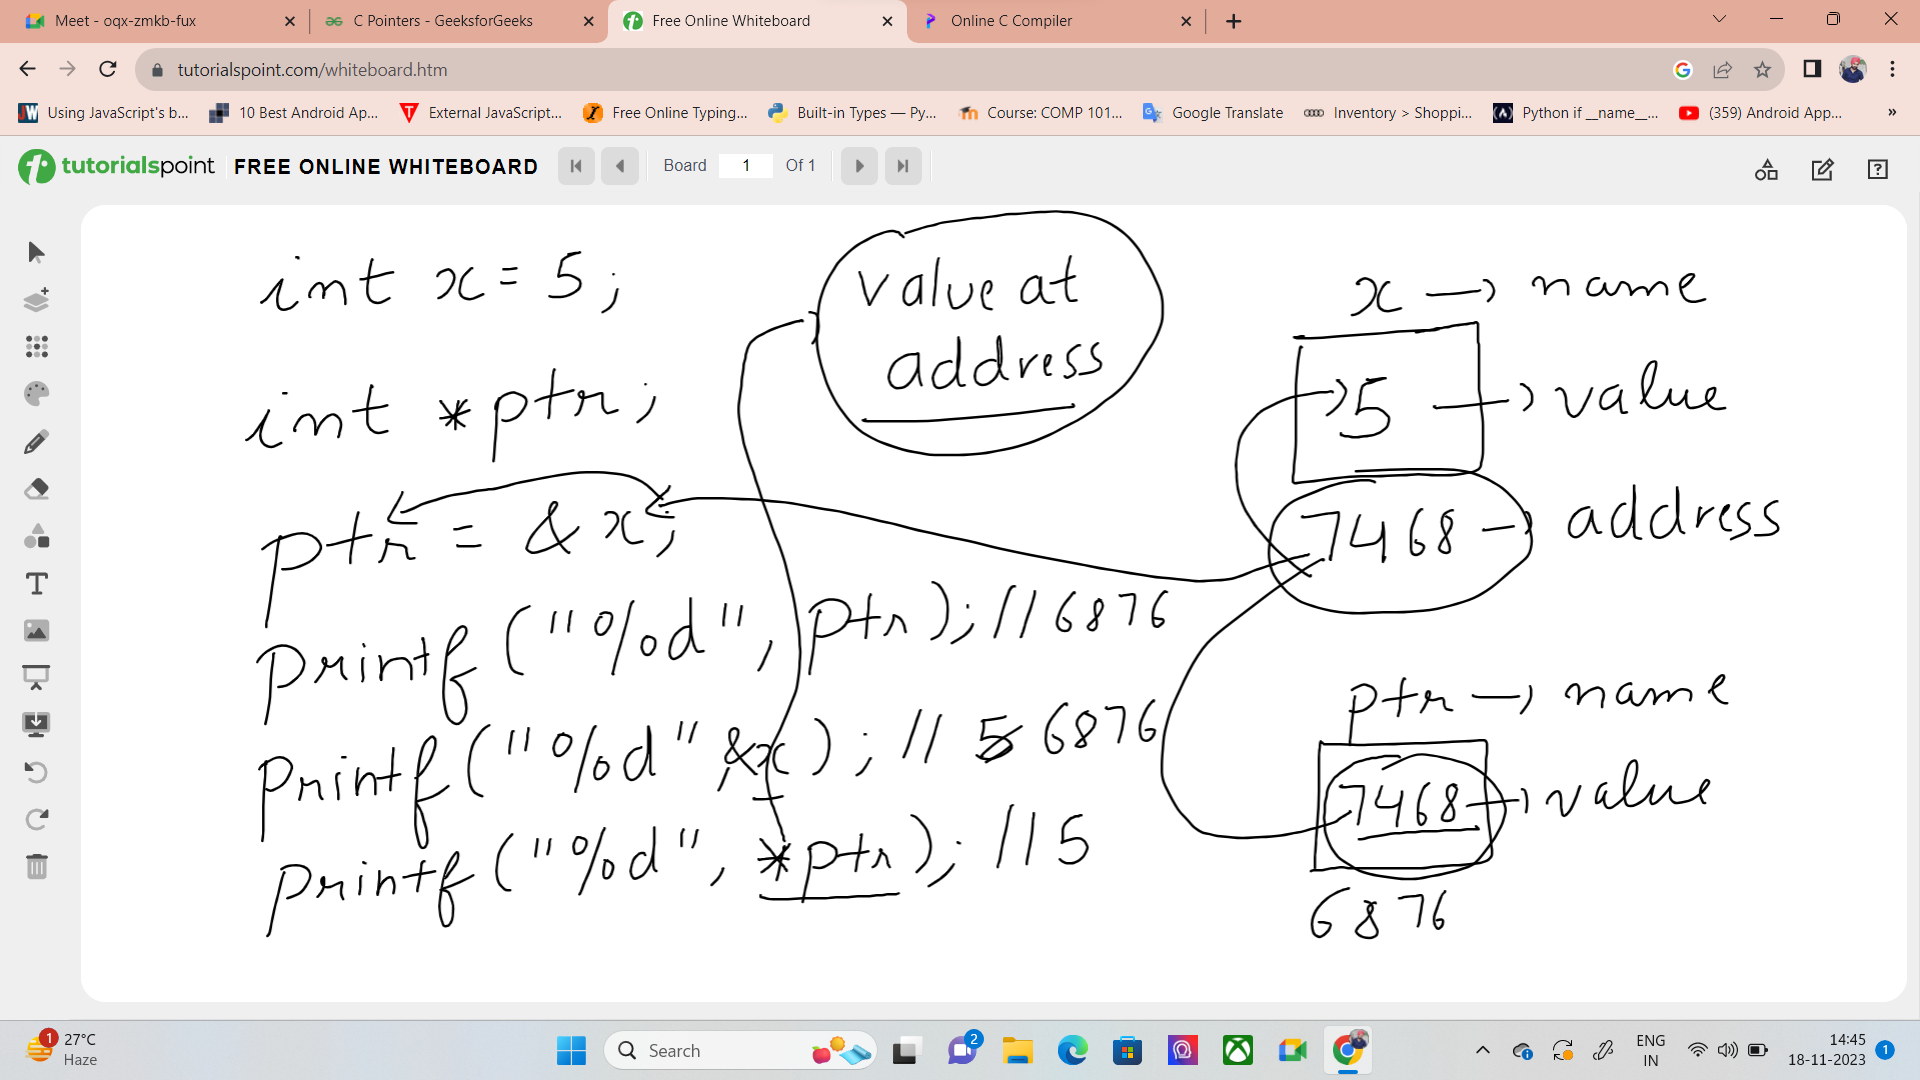 Meet - oqx-zmkb-fux
C Pointers - GeeksforGeeks
Free Online Whiteboard
Online C Compiler
tutorialspoint.com/whiteboard.htm
Using JavaScript's b...
10 Best Android Ap...
External JavaScript...
Free Online Typing...
Built-in Types — Py...
Course: COMP 101...
Google Translate
Inventory > Shoppi...
Python if __name__...
(359) Android App...
»
tutorialspoint
FREE ONLINE WHITEBOARD
Board 1 Of 1
int x = 5;
int *ptr;
ptr = &x;
printf("%d", ptr); //6876
printf("%d" ,&x); // 5 6876
printf("%d", *ptr); //5
value at
address
x → name
5 → value
7468 → address
ptr → name
7468 → value
6876
1
27°C
Haze
Search
2
ENG
IN
14:45
18-11-2023
1